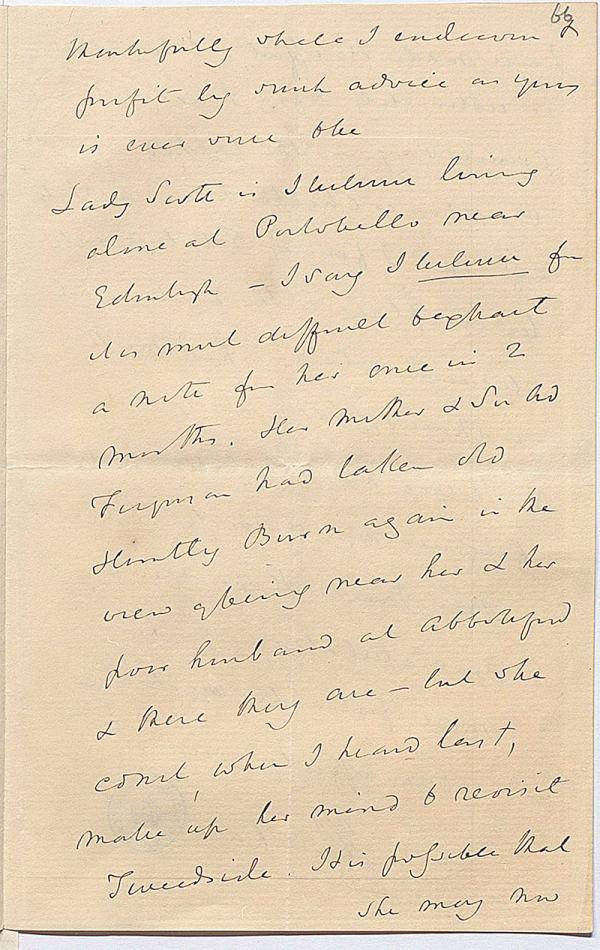 66
thankfully while I endeavour
profit by such advice as yours
is ever sure the
Lady Scott is I believe living
alone at Portobello near
Edinbrgh – I say I believe for
it is most difficult to extract
a note from her once in 2
months. Her mother & Sir Ad
Ferguson had taken old
Huntly Burn again in the
view of being near her & her
poor husband at Abbotsford
& there they are – but she
could, when I heard last,
make up her mind to revisit
Tweedside. It is possible that
she may now